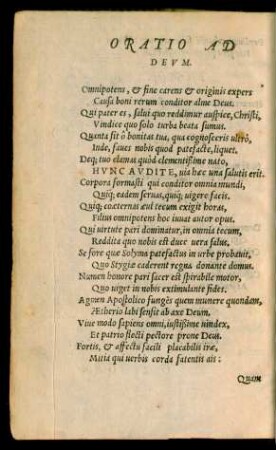 ORATIO AD
DEVM.
Omnipotens, & fine carens & originis expers
Causa boni rerum conditor alme Deus.
Qui pater es, salui quo reddimur auspice, Christi,
Vindice quo solo turba beata sumus.
Quanta sit ô bonitas tua, qua cognosceris ultrò,
Inde, faues nobis quod patefacte, liquet.
Deq; tuo clamas quòd clementissime nato,
HVNC AVDITE, uia hæc una salutis erit.
Corpora formasti qui conditor omnia mundi,
Quíq; eadem seruas, quíq; uigere facis.
Quiq; coæternas æui tecum exigit horas,
Filius omnipotens hoc iuuat autor opus.
Qui uirtute pari dominatur, in omnia tecum,
Reddita quo nobis est duce uera salus.
Se fore quæ Solyma patefactus in urbe probauit,
Quo Stygiæ caderent regna donante domus.
Numen honore pari facer est spirabile motor,
Quo uiget in nobis eximulante fides.
Agmen Apostolico fungēs quem munere quondam,
Ætherio labi sensit ab axe Deum.
Vnæ modo sapiens omni, iustissime uindex,
Et patrio flecti pectore prone Deus.
Fortis, & affectu facili placabilis iræ,
Mitia qui uerbis corda fatentis ais:
Quam